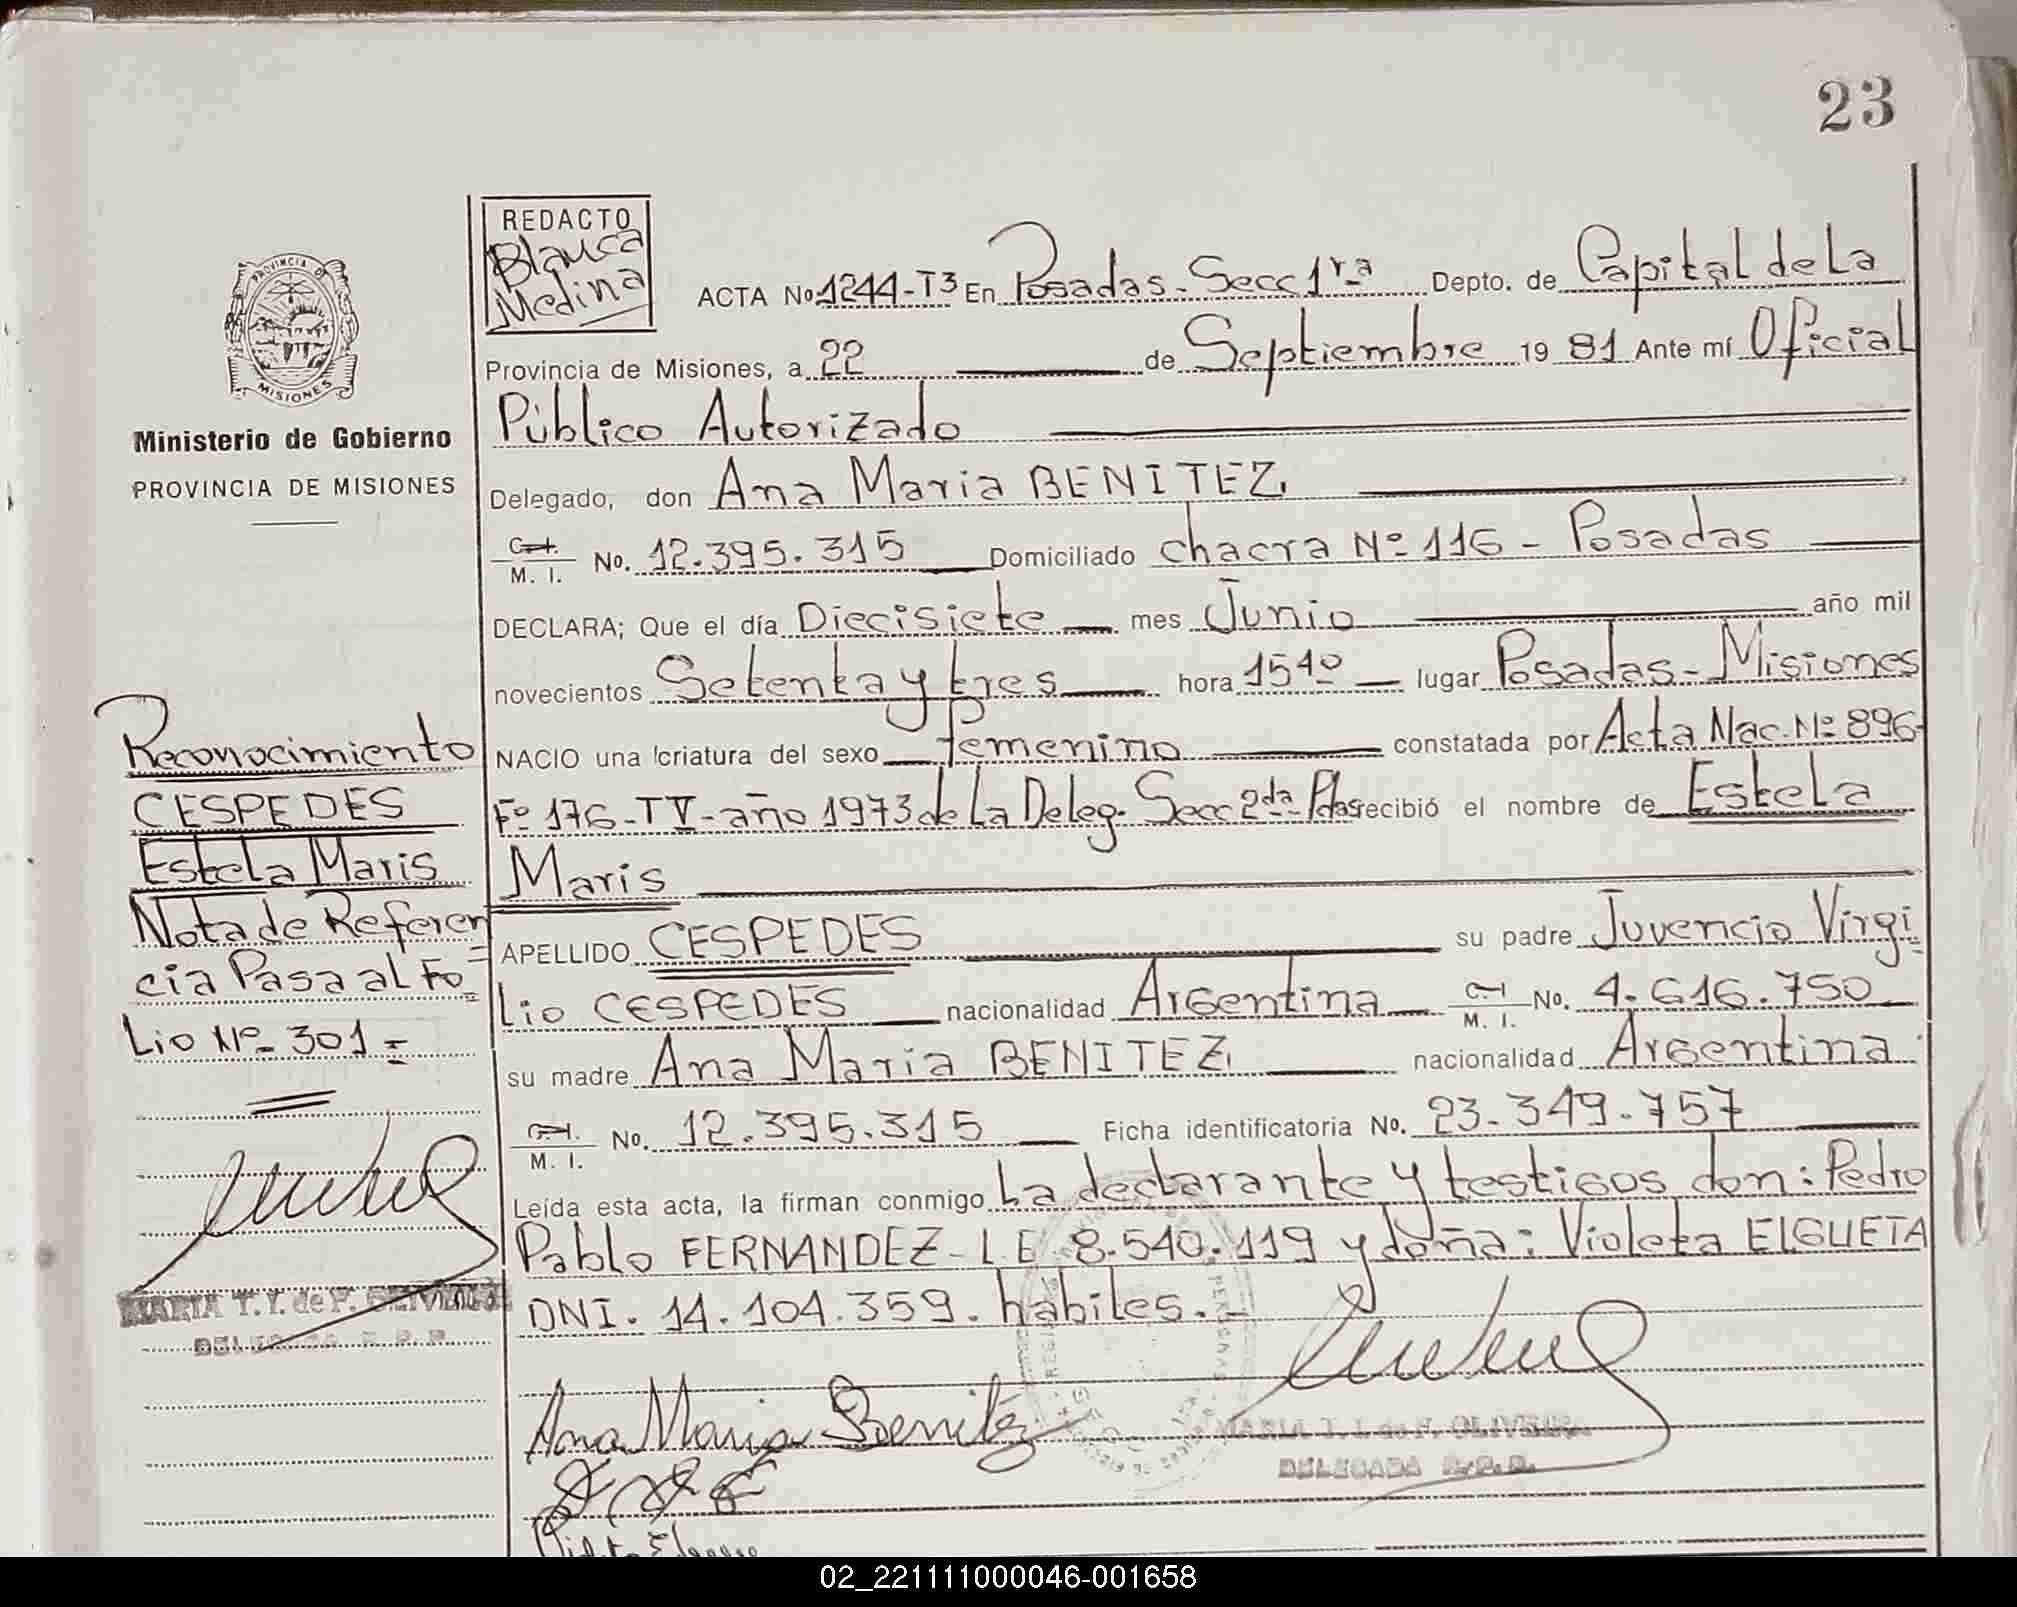 23
REDACTO
Blanca
Medina
PROVINCIA D
MISIONES
Ministerio de Gobierno
PROVINCIA DE MISIONES
ACTA No. 1244-T3 En Posadas. Secc 1ra Depto. de Capital de La
Provincia de Misiones, a 22 de Septiembre 19 81 Ante mí Oficial
Público Autorizado
Delegado, don Ana Maria BENITEZ
C.I. M. I. No. 12.395.315 Domiciliado chacra Nº 116 - Posadas
DECLARA; Que el día Diecisiete mes Junio año mil
novecientos Setenta y tres hora 15 40 lugar Posadas - Misiones
NACIO una criatura del sexo femenino constatada por Acta Nac. Nº 896-
Fº 176-TV-año 1973 de La Deleg. Secc 2da Pdas recibió el nombre de Estela
Maris
APELLIDO CESPEDES su padre Juvencio Virgi
Lio CESPEDES nacionalidad Argentina C.I. M. I. No. 4.616.750
su madre Ana Maria BENITEZ nacionalidad Argentina
C.I. M. I. No. 12.395.315 Ficha identificatoria No. 23.349.757
Leída esta acta, la firman conmigo La declarante y testigos don: Pedro
Pablo FERNANDEZ - L.E 8.540.119 y doña: Violeta ELGUETA
DNI. 14.104.359. habiles.-
Reconocimiento
CESPEDES
Estela Maris
Nota de Referen
cia Pasa al Fo
Lio Nº 301=
MARIA T. I. de F. OLIVEIRA
DELEGADA R. P. P.
Ana Maria Benitez
MARIA T. I. de F. OLIVEIRA
DELEGADA R. P. P.
02_221111000046-001658